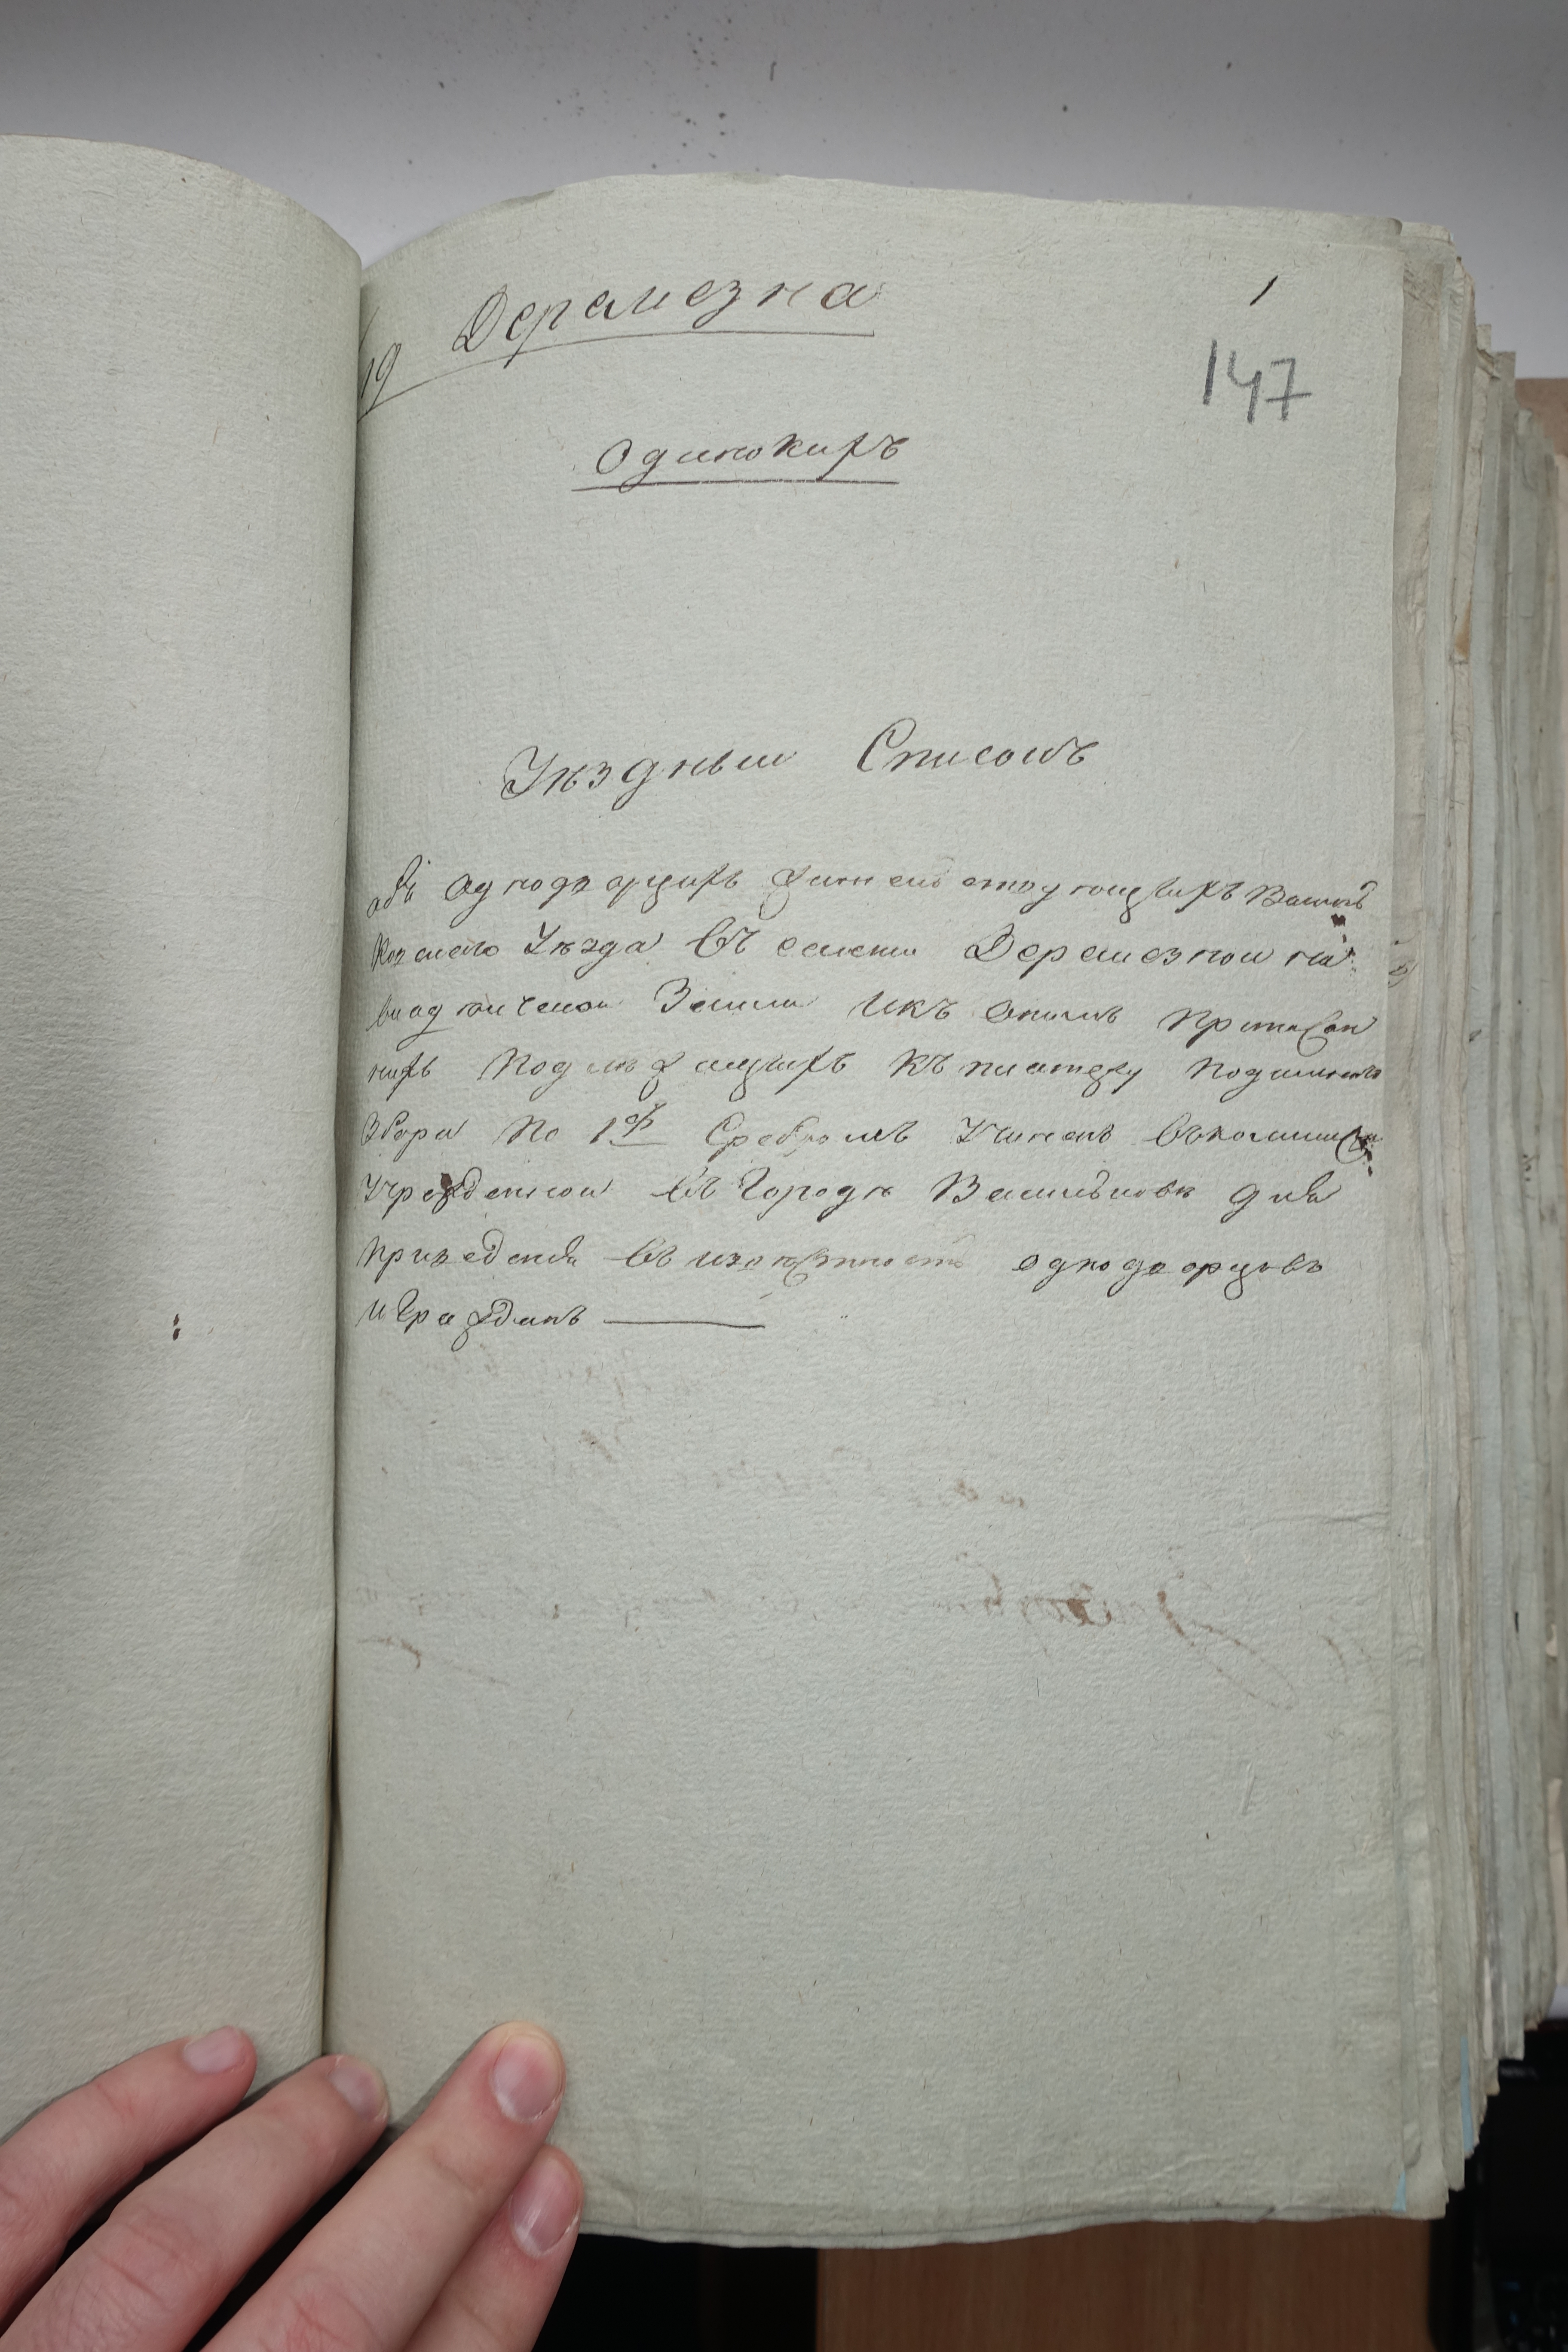 Деремезна
1
19
147
Одинокихъ
Уѣздныи Списокъ
объ Однодворцахъ жительствующихъ Василь
ковского Уѣзда въ селении Деремезнои на
владельческои Земли и къ онымъ Приписан
ныхъ Подлежащихъ къ платежу Подымнаго
Збора По 1 Сребромъ Учиненъ въ комиссии
Учрежденнои въ Городѣ Василькове для
приведения въ известность однодворцовъ
и Гражданъ